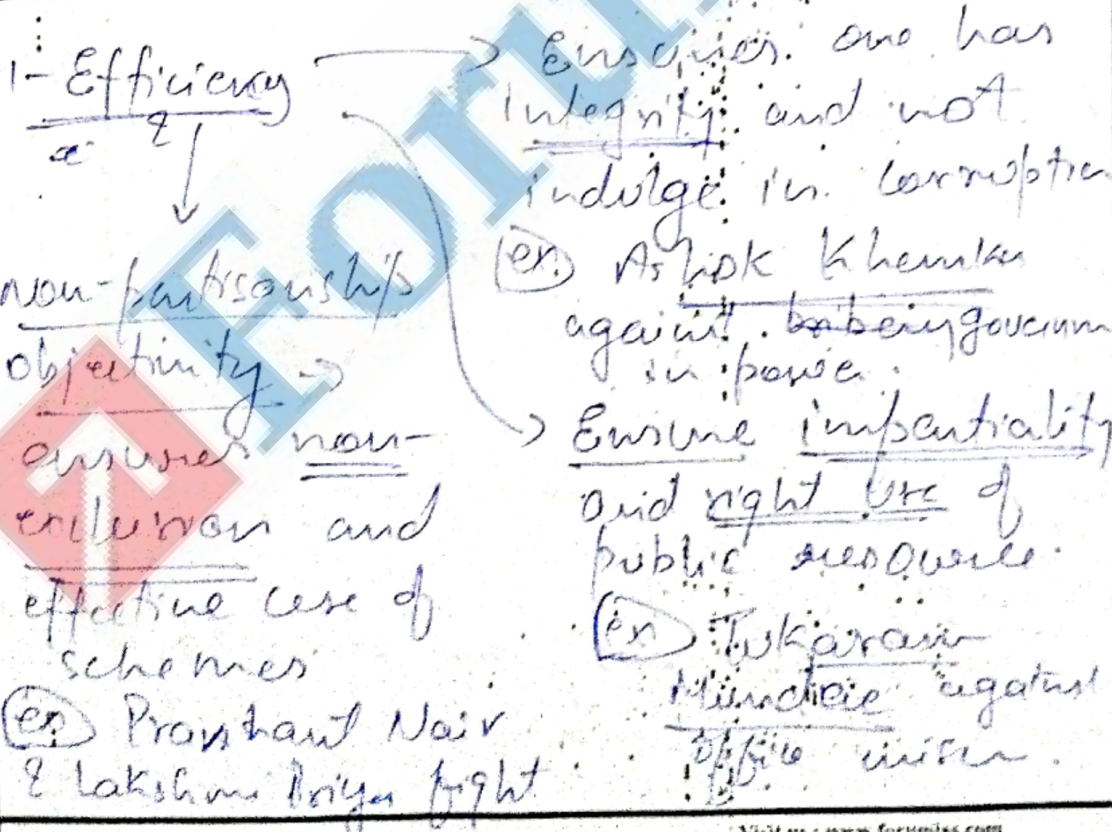 1- Efficiency
&
non-partisanship
objectivity →
ensures non-
exclusion and
effective use of
schemes
(ex) Prashant Nair
& Lakshmi Priya fight
→ Ensures one has
integrity and not
indulge in corruption
(ex) Ashok Khemka
against being governm
in power.
→ Ensure impartiality
and right use of
public resource.
(ex) Tukaram
Mundhe against
office
Visit us : www.forumias.com
Foru